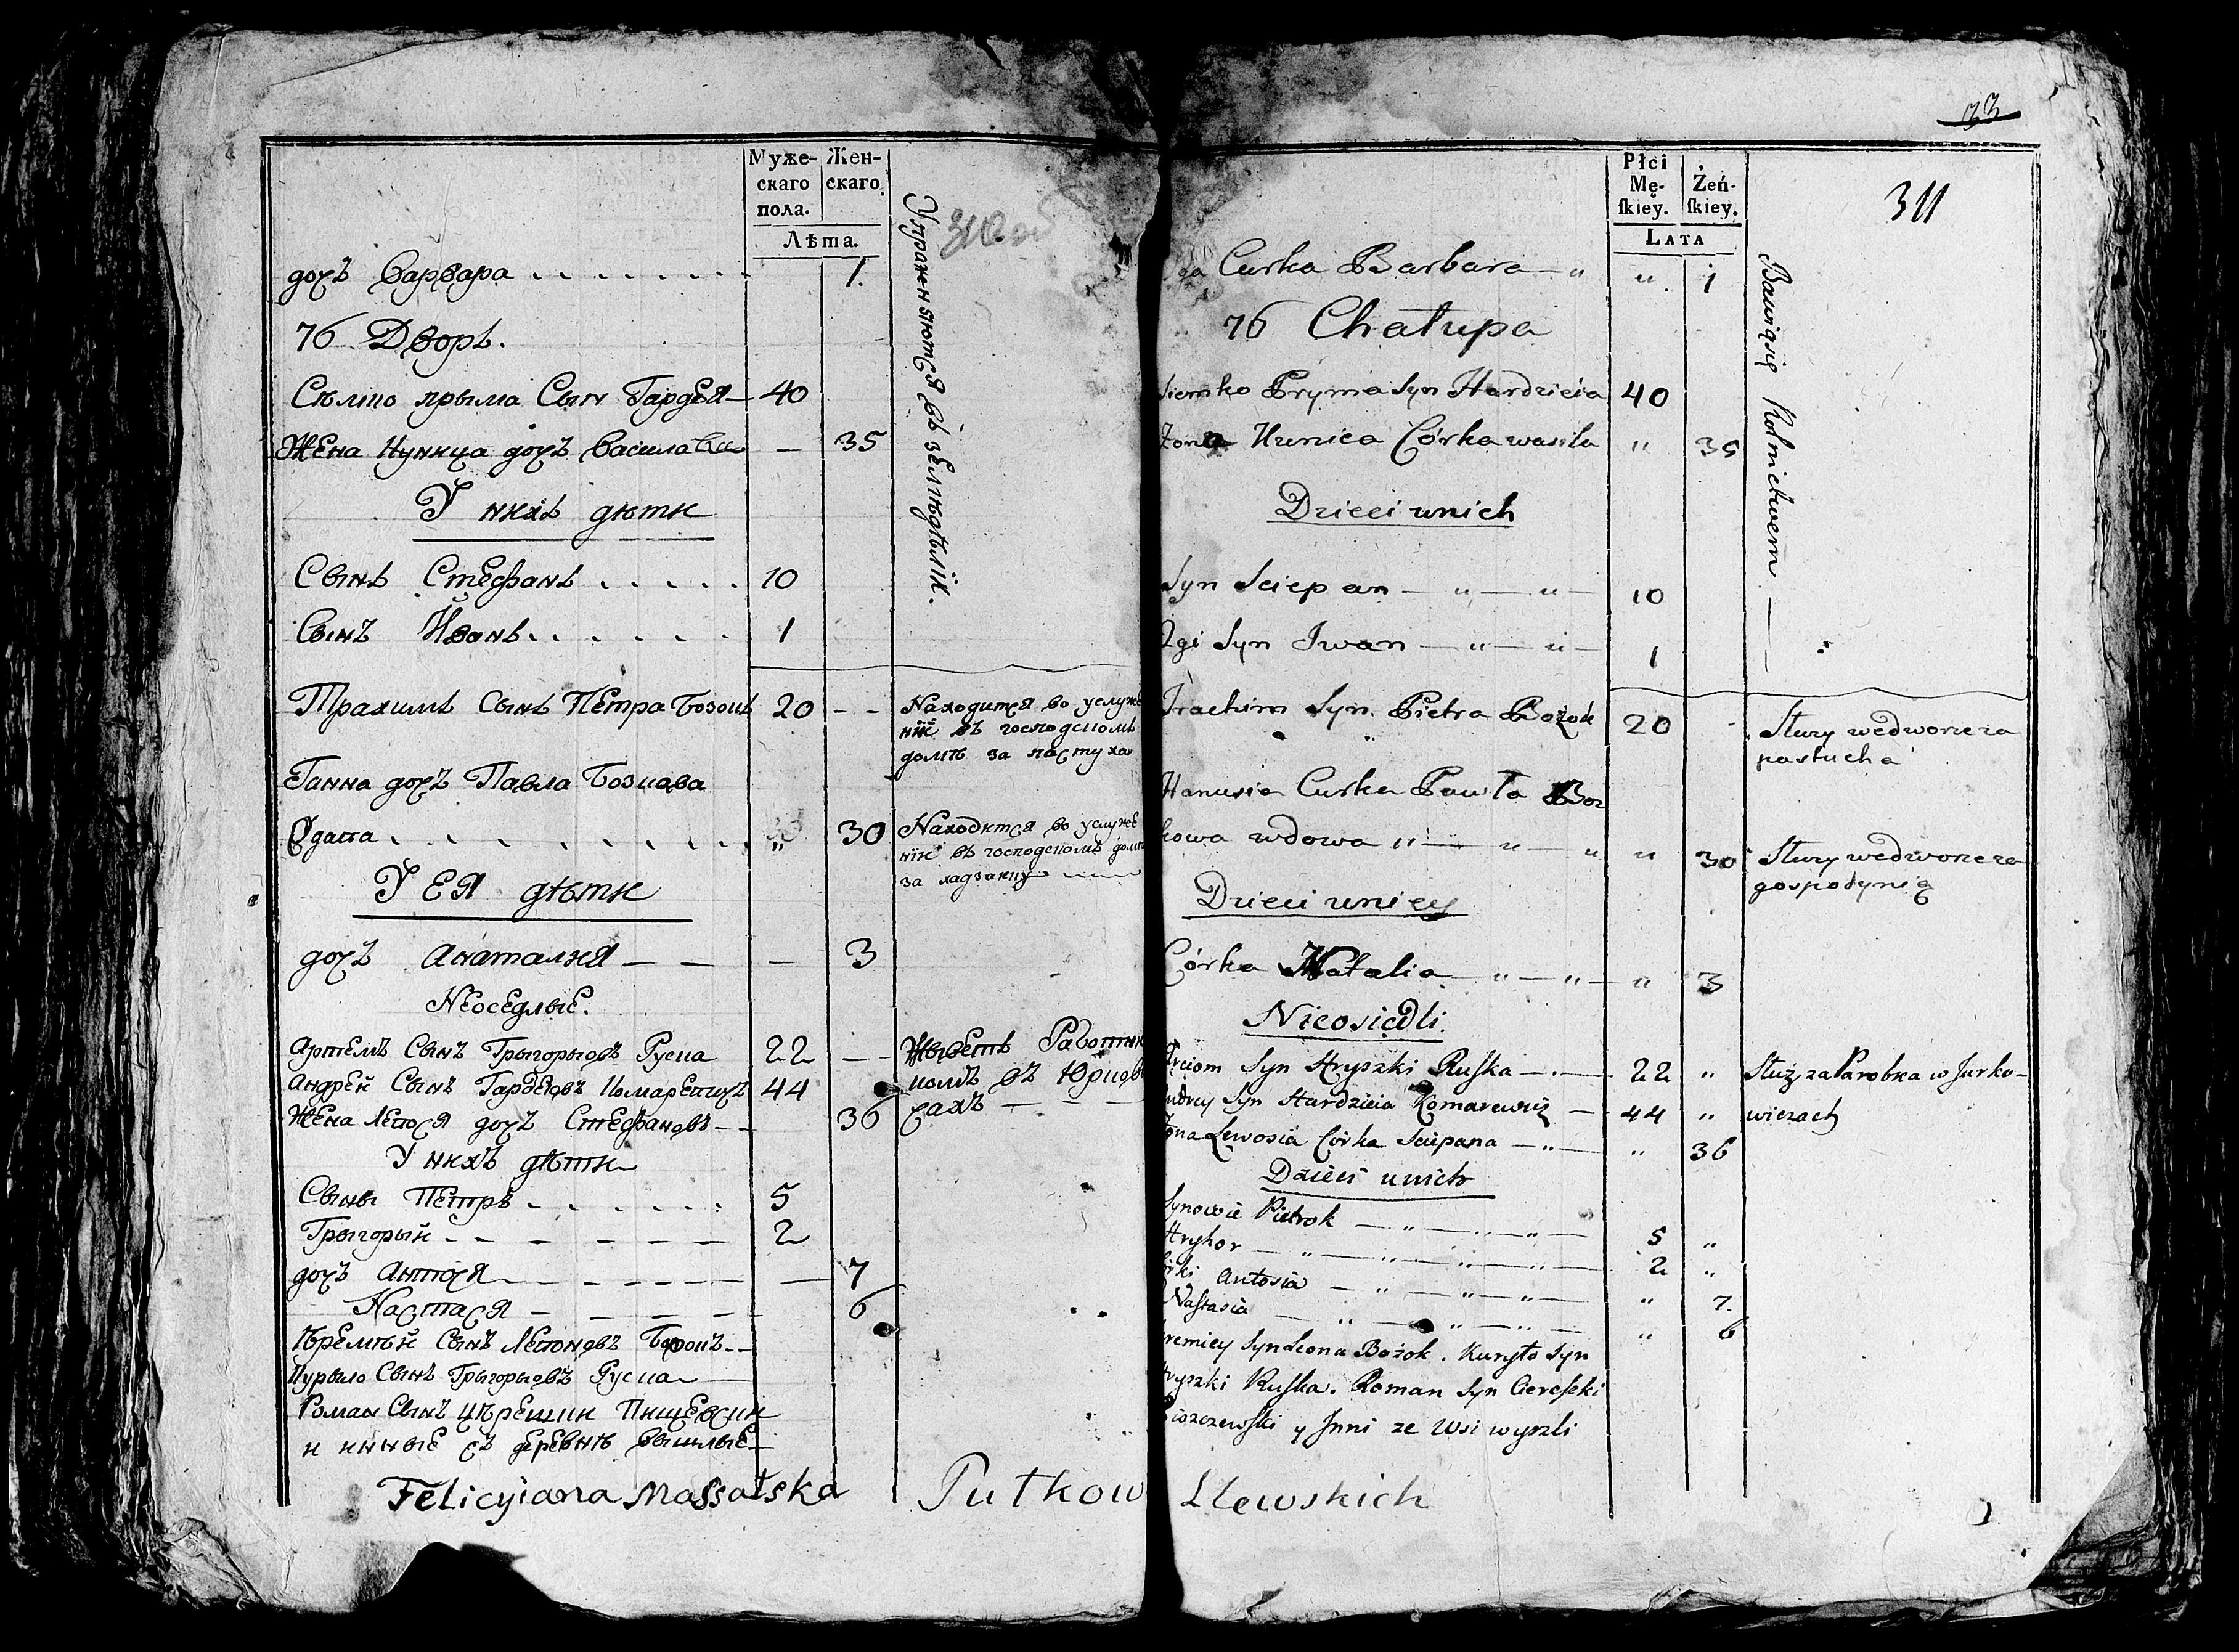 Муже-
скаго
пола.
Жен-
скаго
Лѣта.
Упраженяются въ земледѣлiи.
310 об
дочъ Варвара 1.
76 Дворъ.
Сѣмко прыма Сын Гардея 40
Жена Куница дочъ Василава — 35
У нихъ дѣти
Сынъ Стефанъ 10
Сынъ Иванъ 1
Трахимъ Сынъ Петра Бозокъ 20 — —
Находится во услуже
нiи въ господскомъ
домѣ за пастуха
Ганна дочъ Павла Бозкова
Вдава " 30
Находится во услуже
нiи въ господскомъ домѣ
за хадзаику
У ея дѣти
дочъ Анаталия — — — 3
Неоседлые.
Артемъ Сынъ Грыгорьовъ Руска 22 —
Живетъ Работни
комъ въ Юркови
сахъ — — —
Андрей Сынъ Гардеювъ Комаревичъ 44
Жена Левося дочъ Стефановъ — — 36
У нихъ дѣти
Сыны Петръ 5
Грыгорый 2
дочъ Антося — 7
Настася 6
Яремѣй Сынъ Левоновъ Бозокъ
Курыло Сынъ Грыгорьювъ Руска
Роман Сынъ Церешки Пищевски
и инные съ деревнѣ вышлые
Felicyiana Massalska Putkow
33
311
Płci
Mę-
ſkiey.
Żeń-
ſkiey.
Lata
Bawiąsię Rolnictwem
ga Curka Barbara — " " 1
76 Chałupa
Siemko Pryma Syn Hardzieia 40
Żona Kunica Córka wasila " 35
Dzieci unich
Syn Sciepan — " — " — 10
2gi Syn Iwan — " — " — 1
Trachim Syn Pietra Bożok 20
Służy wedworze za
pastucha
Hanusia Curka Pawła Boz
kowa wdowa " — " — " " 30
Służy wedworze za
gospodynią
Dzieci uniey
Córka Natalia — " — " — " 3
Nieosiedli.
Arciom Syn Hryszki Ruſka — " — 22 "
Służy za Parobka w Jurko-
wiczach
Andrey Syn Hardzieia Komarewicz — 44 "
Żona Lewosia Córka Sciepana — " — " 36
Dzieci unich
Synowie Pietrok — " — " — " — 5 "
Hryhor — " — " — " — " — 2 "
Córki Antosia — " — " — " — " 7.
Naſtasia — " — " — " — " 6
Jeremiey Syn Leona Bożok. Kuryło Syn
Hryszki Ruſka. Roman Syn Cereſzki
Piszczewſki y Jnni ze Wsi wyszli
Llewskich